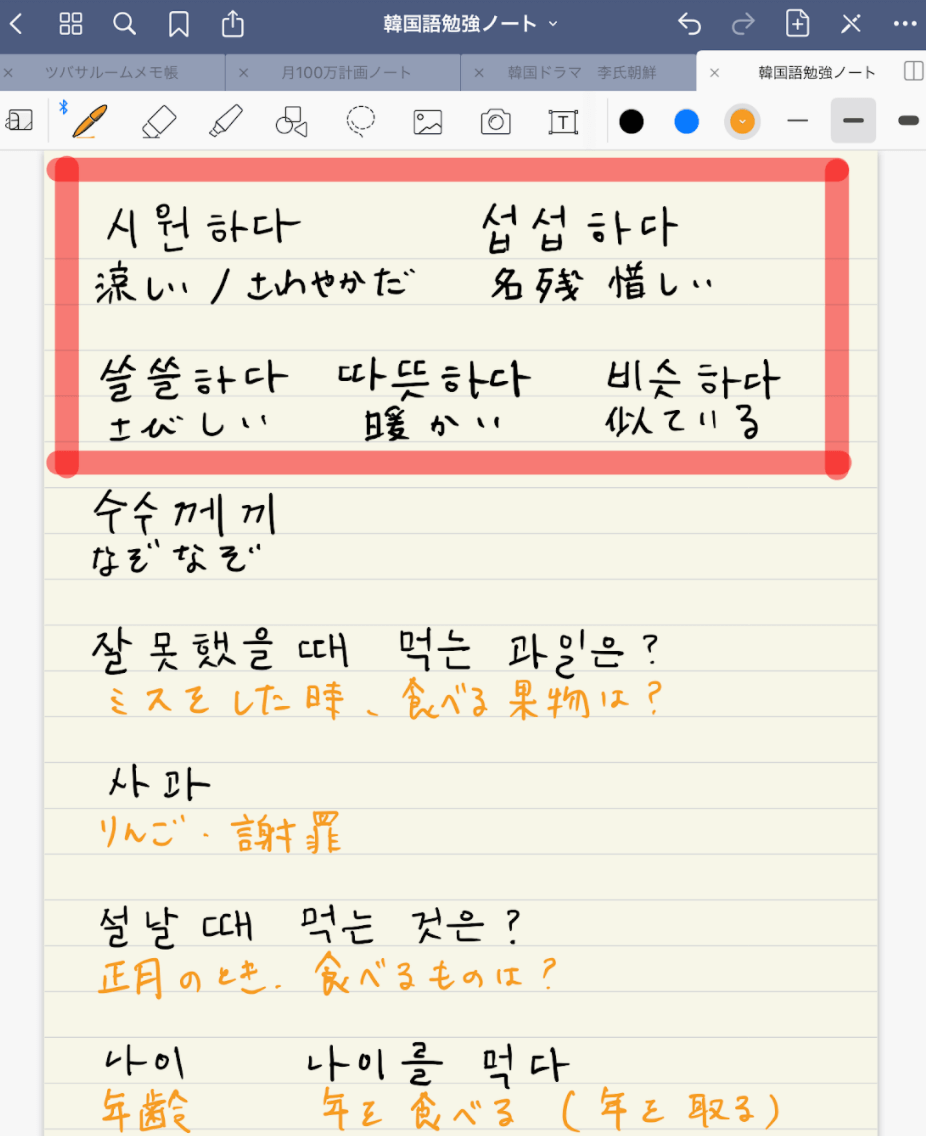 韓国語勉強ノート
ツバサルームメモ帳 月100万計画ノート 韓国ドラマ 李氏朝鮮 韓国語勉強ノート
시원하다 섭섭하다
涼しい/さわやかだ 名残惜しい
쓸쓸하다 따뜻하다 비슷하다
さびしい 暖かい 似ている
수수께끼
なぞなぞ
잘못했을 때 먹는 과일은?
ミスをした時、食べる果物は?
사과
りんご・謝罪
설날 때 먹는 것은?
正月のとき、食べるものは?
나이 나이를 먹다
年齢 年を食べる (年を取る)